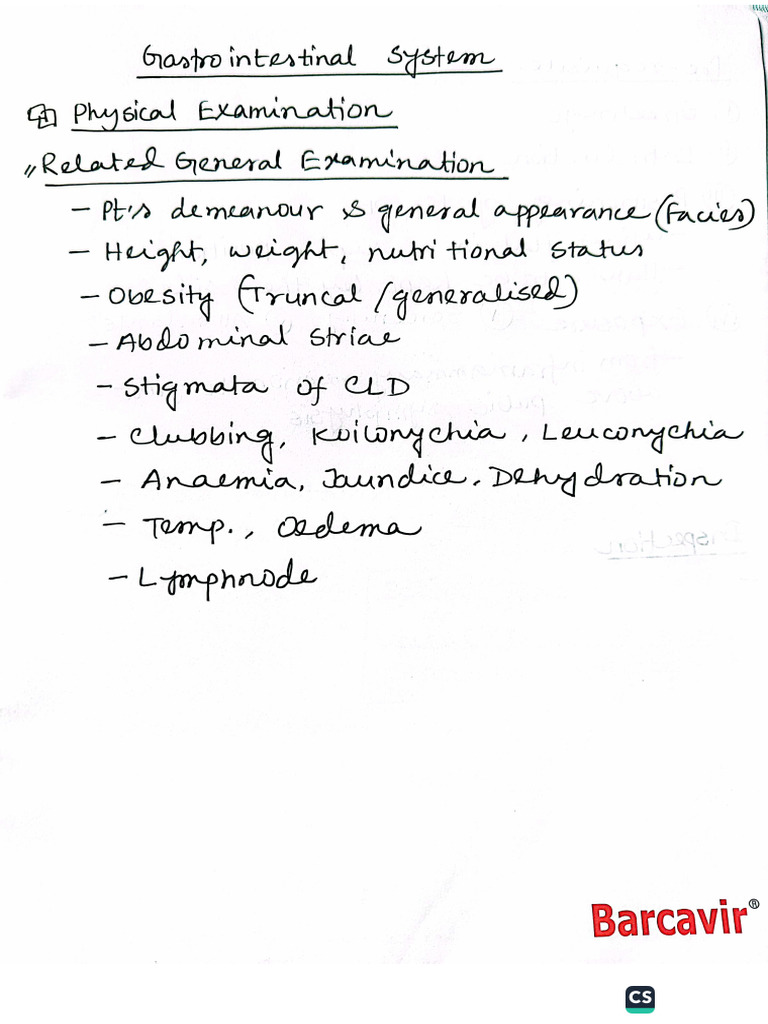 Gastrointestinal System
Physical Examination
Related General Examination
- Pt's demeanour & general appearance (Facies)
- Height, weight, nutritional status
- Obesity (Truncal/generalised)
- Abdominal Striae
- Stigmata of CLD
- Clubbing, Koilonychia, Leuconychia
- Anaemia, Jaundice, Dehydration
- Temp., Oedema
- Lymphnode
Barcavir®
CS